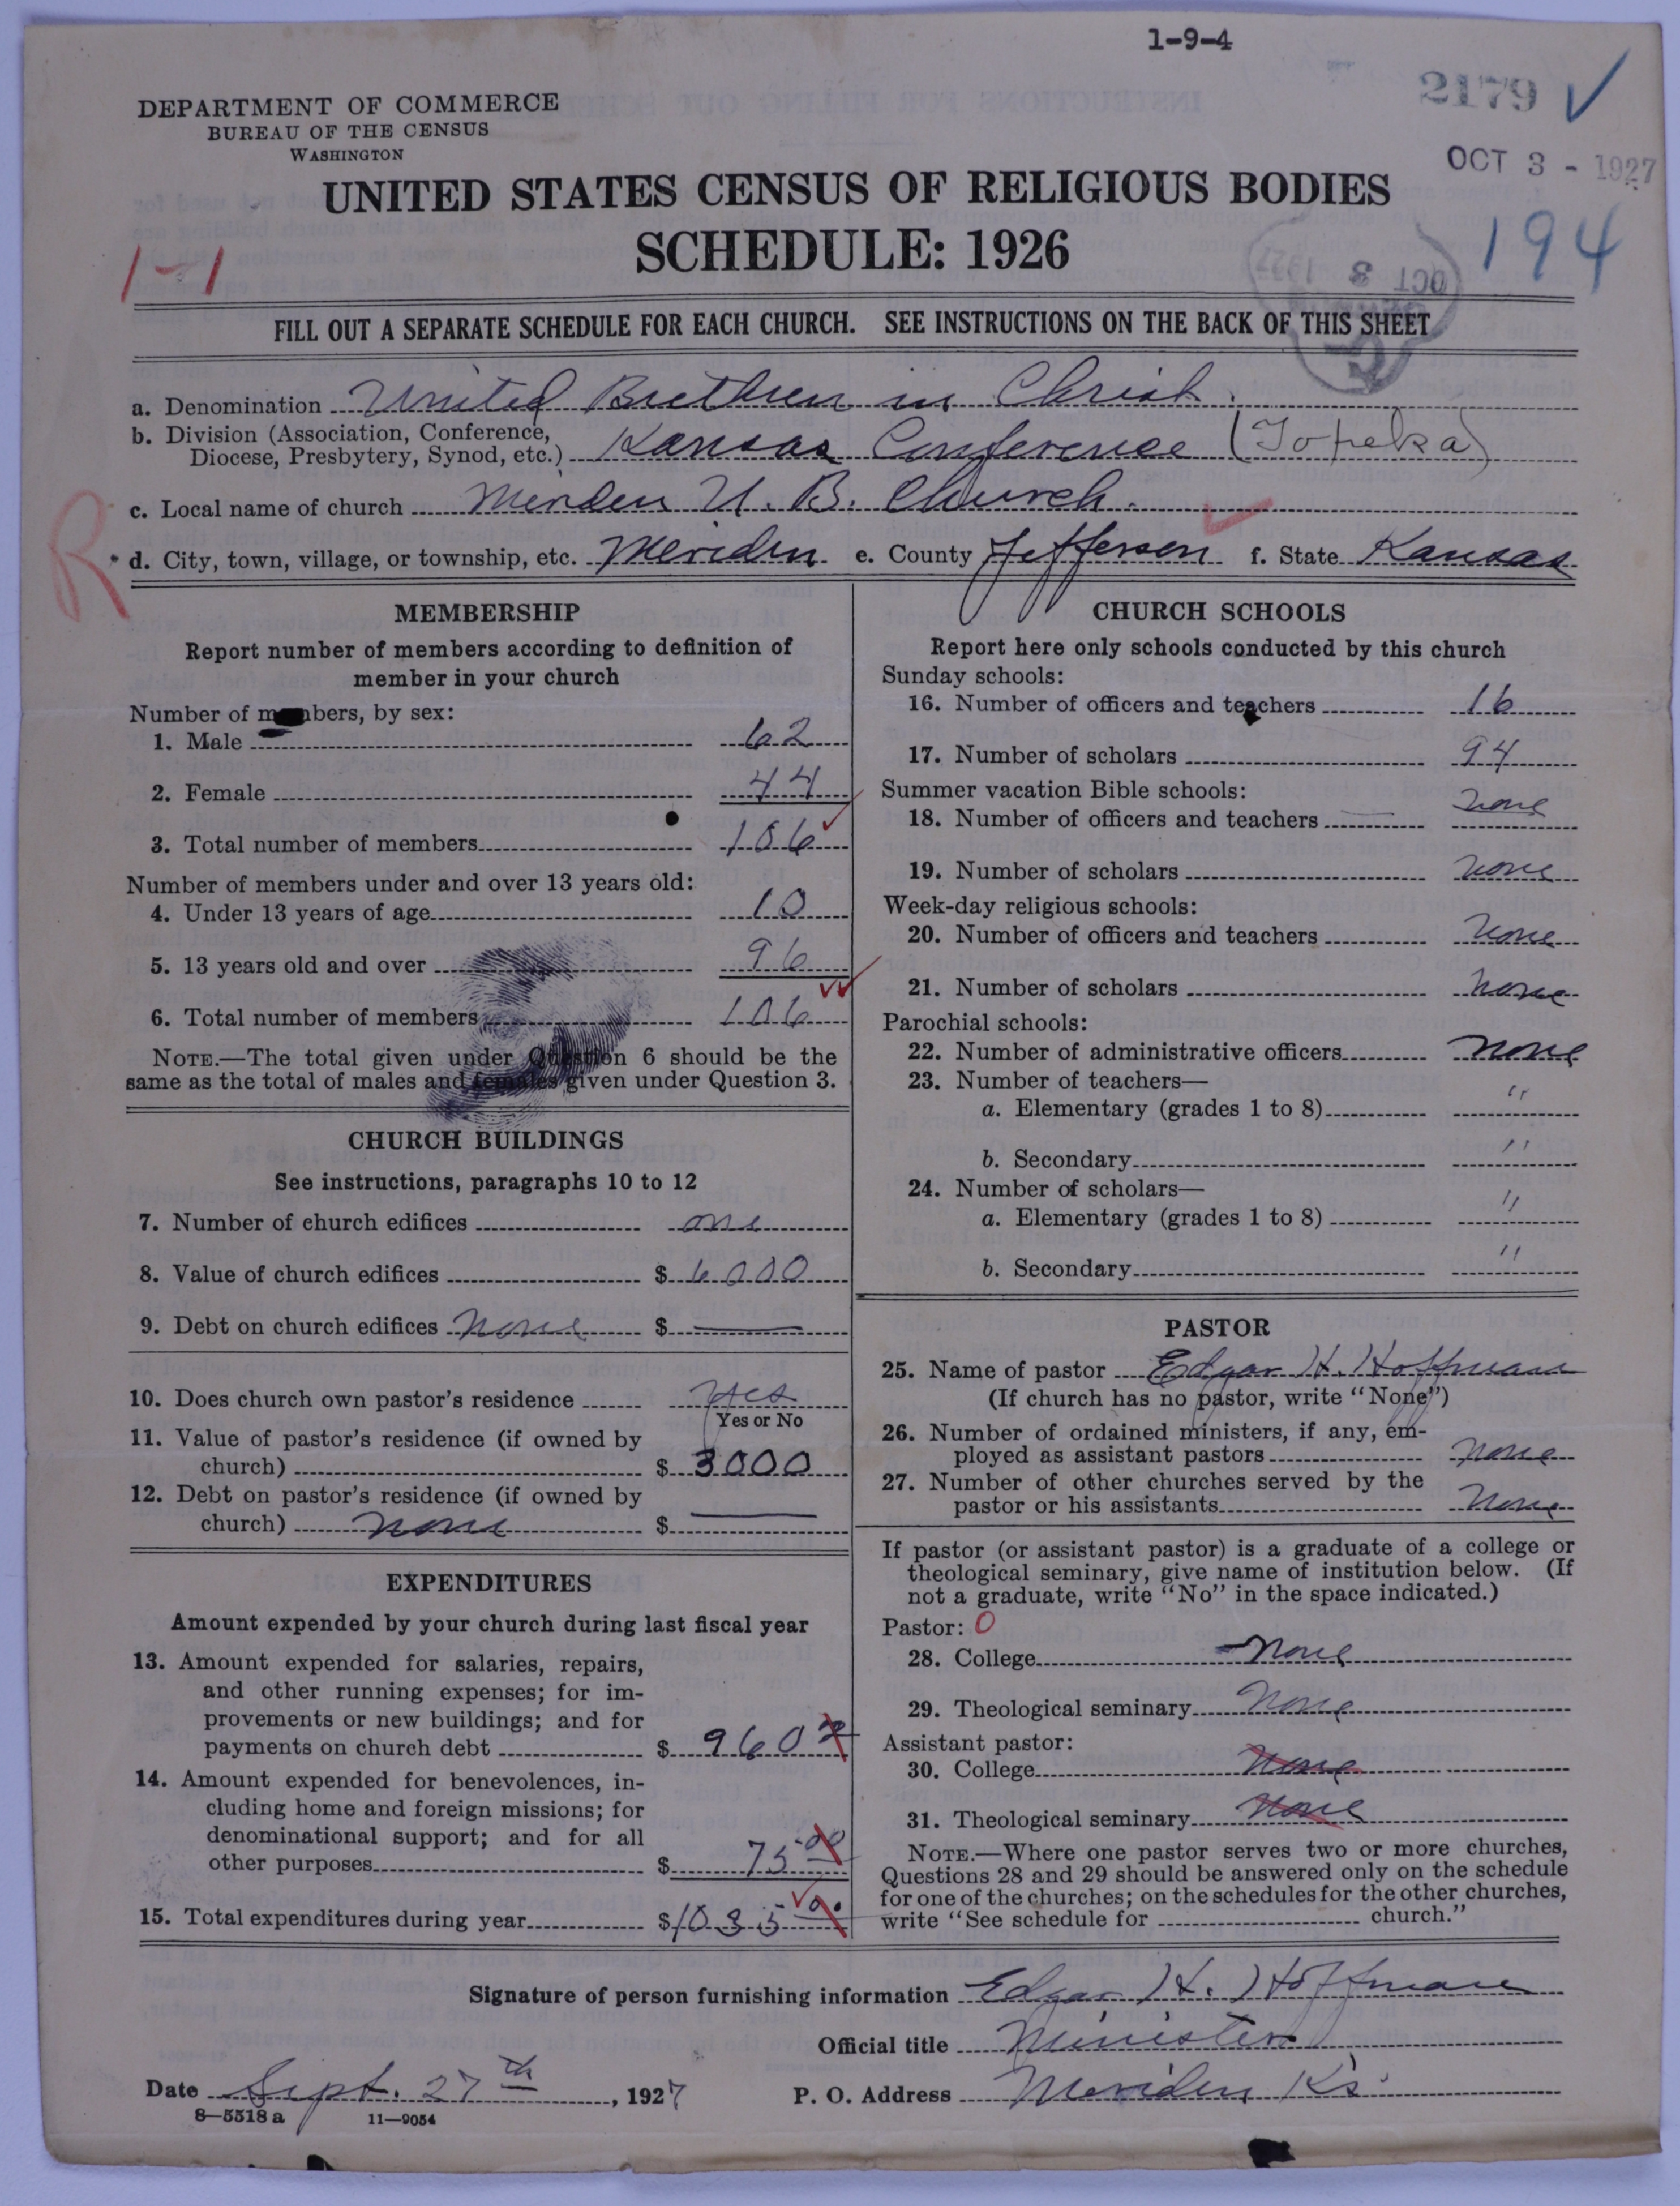 1-9-4
2179 ✓
DEPARTMENT OF COMMERCE
BUREAU OF THE CENSUS
WASHINGTON
OCT 3 - 1927
UNITED STATES CENSUS OF RELIGIOUS BODIES
SCHEDULE: 1926
194
1-1
OCT 3 1927
FILL OUT A SEPARATE SCHEDULE FOR EACH CHURCH. SEE INSTRUCTIONS ON THE BACK OF THIS SHEET
a. Denomination United Brethren in Christ.
b. Division (Association, Conference,
Diocese, Presbytery, Synod, etc.) Kansas Conference (Topeka)
c. Local name of church Meriden U. B. Church.
R
d. City, town, village, or township, etc. Meriden e. County Jefferson f. State Kansas
MEMBERSHIP
Report number of members according to definition of
member in your church
Number of members, by sex:
1. Male 62
2. Female 44
3. Total number of members 106
Number of members under and over 13 years old:
4. Under 13 years of age 10
5. 13 years old and over 96
6. Total number of members 106
NOTE.—The total given under Question 6 should be the
same as the total of males and females given under Question 3.
CHURCH BUILDINGS
See instructions, paragraphs 10 to 12
7. Number of church edifices one
8. Value of church edifices $ 6000
9. Debt on church edifices none $ —
10. Does church own pastor's residence yes
Yes or No
11. Value of pastor's residence (if owned by
church) $ 3000
12. Debt on pastor's residence (if owned by
church) none $ —
EXPENDITURES
Amount expended by your church during last fiscal year
13. Amount expended for salaries, repairs,
and other running expenses; for im-
provements or new buildings; and for
payments on church debt $ 960
14. Amount expended for benevolences, in-
cluding home and foreign missions; for
denominational support; and for all
other purposes $ 75.00
15. Total expenditures during year $1035.00
CHURCH SCHOOLS
Report here only schools conducted by this church
Sunday schools:
16. Number of officers and teachers 16
17. Number of scholars 94
Summer vacation Bible schools:
18. Number of officers and teachers none
19. Number of scholars none
Week-day religious schools:
20. Number of officers and teachers none
21. Number of scholars none
Parochial schools:
22. Number of administrative officers none
23. Number of teachers—
a. Elementary (grades 1 to 8) "
b. Secondary "
24. Number of scholars—
a. Elementary (grades 1 to 8) "
b. Secondary "
PASTOR
25. Name of pastor Edgar H. Hoffman
(If church has no pastor, write "None")
26. Number of ordained ministers, if any, em-
ployed as assistant pastors none
27. Number of other churches served by the
pastor or his assistants none
If pastor (or assistant pastor) is a graduate of a college or
theological seminary, give name of institution below. (If
not a graduate, write "No" in the space indicated.)
Pastor: 0
28. College none
29. Theological seminary none
Assistant pastor:
30. College none
31. Theological seminary none
NOTE.—Where one pastor serves two or more churches,
Questions 28 and 29 should be answered only on the schedule
for one of the churches; on the schedules for the other churches,
write "See schedule for church."
Signature of person furnishing information Edgar H. Hoffman
Official title Minister
Date Sept. 27th, 1927 P. O. Address Meriden Ks.
8—5518 a 11—9054